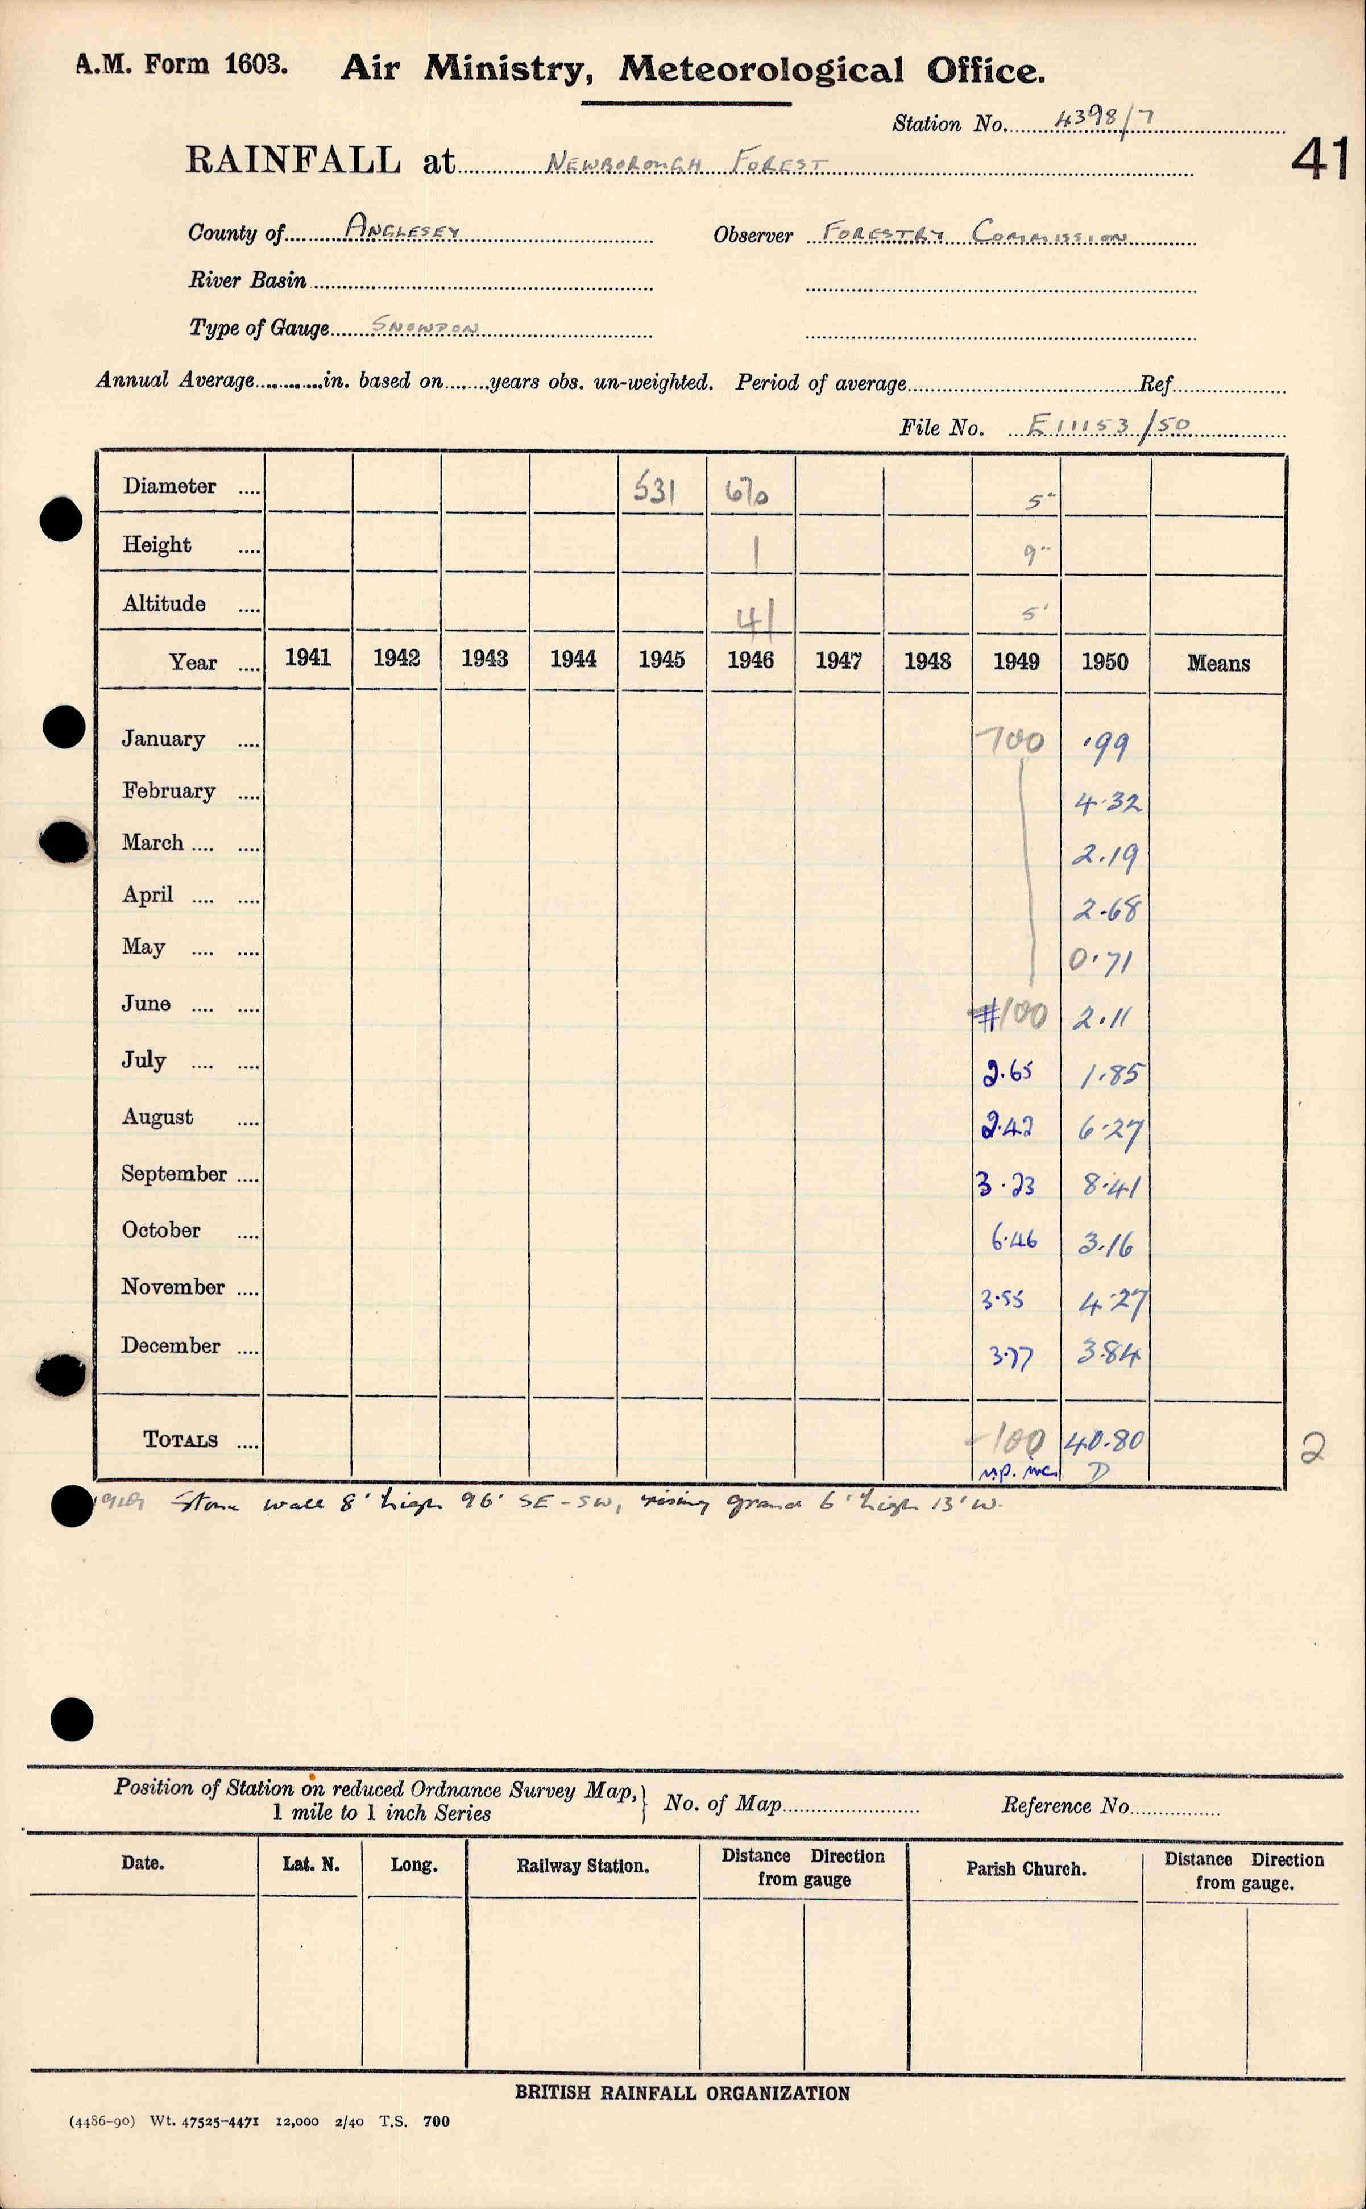 A.M. Form 1603. Air Ministry, Meteorological Office.
Station No. 4398/7
RAINFALL at NEWBOROUGH FOREST 41
County of ANGLESEY Observer FORESTRY COMMISSION
River Basin
Type of Gauge SNOWDON
Annual Average in. based on years obs. un-weighted. Period of average Ref
File No. E11153/50
Diameter 531 6/0 5"
Height 1 9"
Altitude 41 5'
Year 1941 1942 1943 1944 1945 1946 1947 1948 1949 1950 Means
January 700 .99
February 4.32
March 2.19
April 2.68
May 0.71
June 100 2.11
July 2.65 1.85
August 2.42 6.27
September 3.23 8.41
October 6.46 3.16
November 3.55 4.27
December 3.77 3.84
TOTALS -100 40.80 2
inc. D
1949 Stone wall 8' high 96' SE-SW, rising ground 6' high 13' W.
Position of Station on reduced Ordnance Survey Map,
1 mile to 1 inch Series
No. of Map Reference No.
Date. Lat. N. Long. Railway Station. Distance Direction from gauge Parish Church. Distance Direction from gauge.
BRITISH RAINFALL ORGANIZATION
(4486-90) Wt. 47525-4471 12,000 2/40 T.S. 700